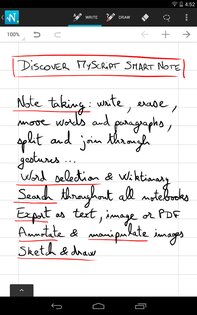 4:52
WRITE DRAW
100%
DISCOVER MYSCRIPT SMART NOTE
Note taking: write, erase,
move words and paragraphs,
split and join through
gestures...
Word selection & Wiktionary
Search throughout all notebooks
Export as text, image or PDF
Annotate & manipulate images
Sketch & draw